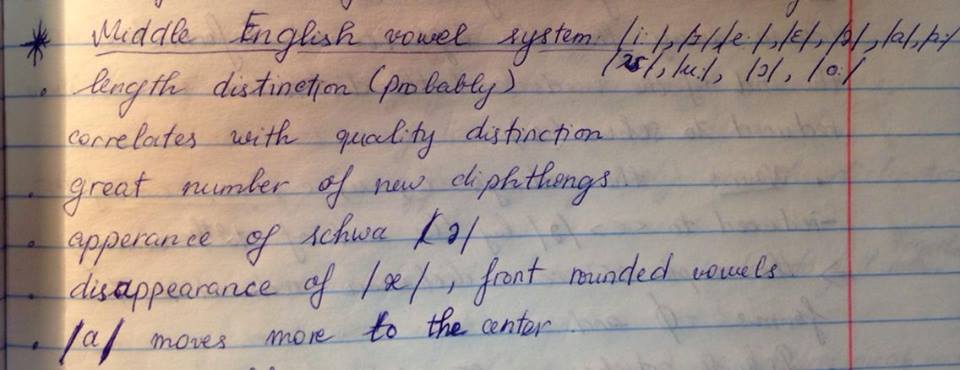 * Middle English vowel system: /i:/, /ɪ/, /e:/, /ɛ/, /ə/, /a/, /ɒ:/
/ʊ/, /u:/, /ɔ/, /o:/
• length distinction (probably)
correlates with quality distinction
• great number of new diphthongs.
• apperance of schwa /ə/
• disappearance of /æ/, front rounded vowels.
• /a/ moves more to the center.